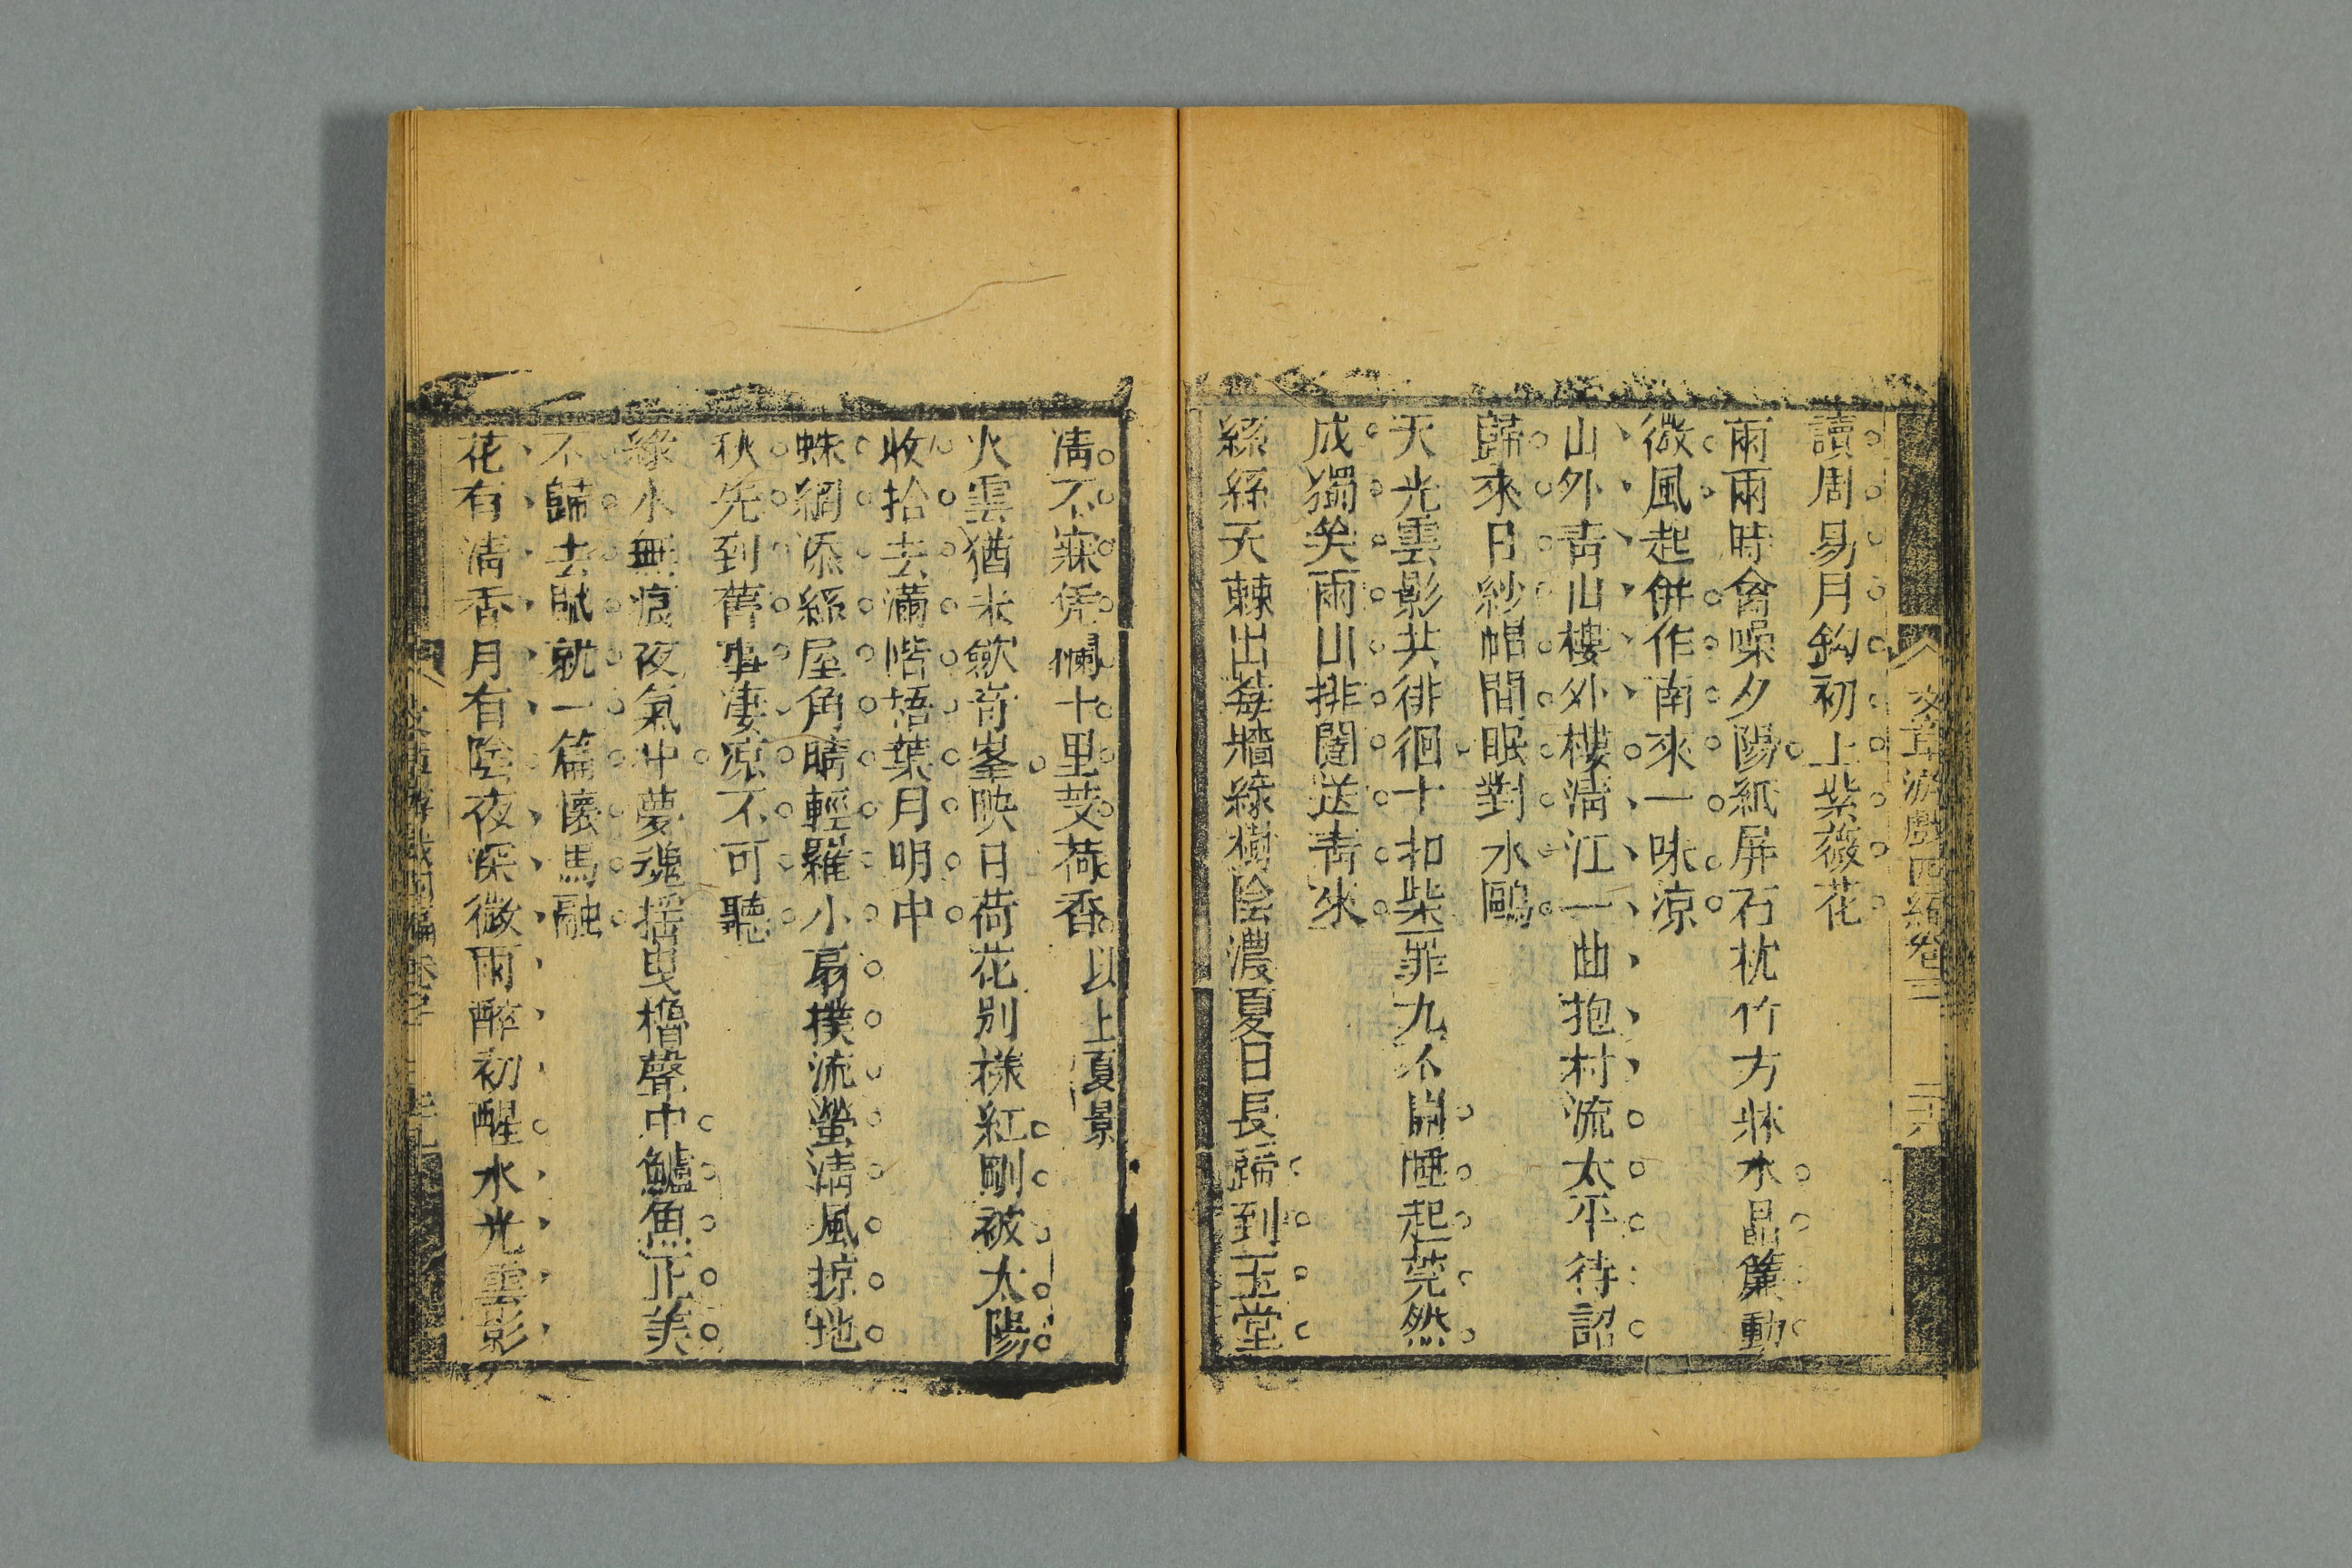 文章游戲四編卷三
二六
讀周易月鈎初上紫薇花
雨雨時禽噪夕陽紙屏石枕竹方牀水晶簾動
微風起併作南來一味凉
山外青山樓外樓清江一曲抱村流太平待詔
歸來日紗帽閒眠對水鷗
天光雲影共徘徊十扣柴扉九不開睡起莞然
成獨笑兩山排闥送青來
絲絲天棘出莓墻綠樹陰濃夏日長歸到玉堂
清不寐凭欄十里芰荷香以上夏景
火雲猶未歛奇峯映日荷花別樣紅剛被太陽
收拾去滿階梧葉月明中
蛛網添絲屋角晴輕羅小扇撲流螢清風掠地
秋先到舊事凄凉不可聽
綠水無痕夜氣冲夢魂搖曳櫓聲中鱸魚正美
不歸去賦就一篇懷馬融
花有清香月有陰夜深微雨醉初醒水光雲影